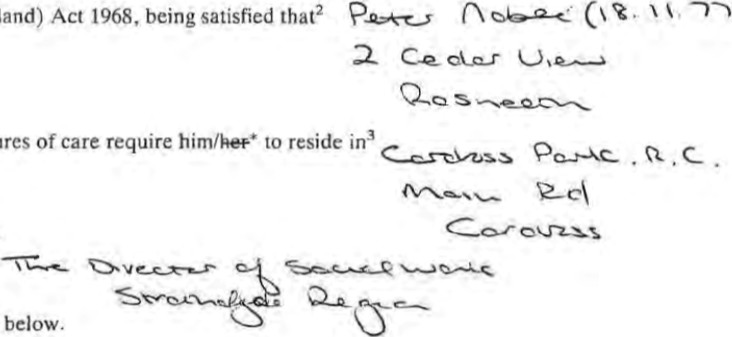 land) Act 1968, being satisfied that² Peter (18.11.77
2 Cedar View
Rosneath
ures of care require him/her* to reside in³ Cardross Park. R.C.
Main Rd
Cardross
The Director of Social Work
Strathclyde Region
below.